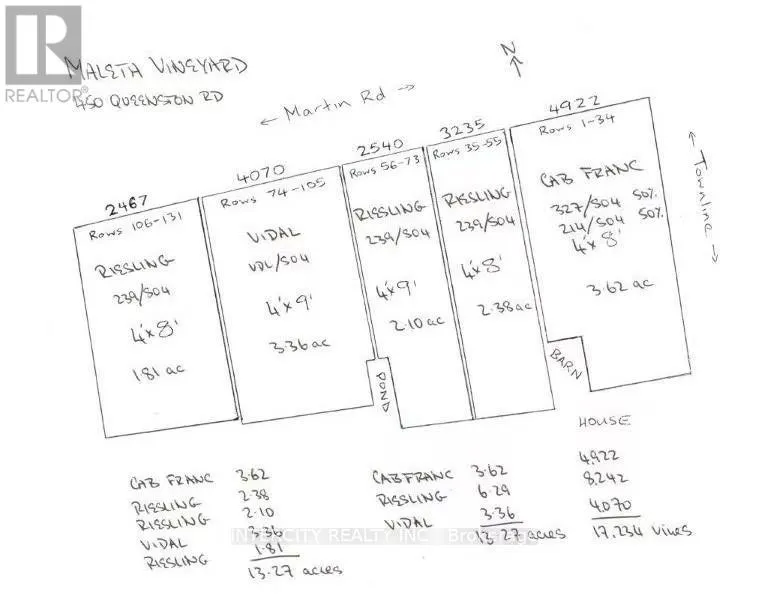 MALETA VINEYARD
450 QUEENSTON RD
REALTOR®
N
← Martin Rd →
← Townline →
2467
Rows 106-131
RIESLING
239/SO4
4'x8'
1.81 ac
4070
Rows 74-105
VIDAL
VDL/SO4
4'x9'
3.36 ac
2540
Rows 56-73
RIESLING
239/SO4
4'x9'
2.10 ac
POND
3235
Rows 35-55
RIESLING
239/SO4
4'x8'
2.38 ac
4922
Rows 1-34
CAB FRANC
327/SO4 50%
214/SO4 50%
4'x8'
3.62 ac
BARN
HOUSE
CAB FRANC 3.62
RIESLING 2.38
RIESLING 2.10
VIDAL 3.36
RIESLING 1.81
13.27 acres
CAB FRANC 3.62
RIESLING 6.29
VIDAL 3.36
13.27 acres
4,922
8,242
4,070
17,234 vines
INTERCITY REALTY INC. Brokerage